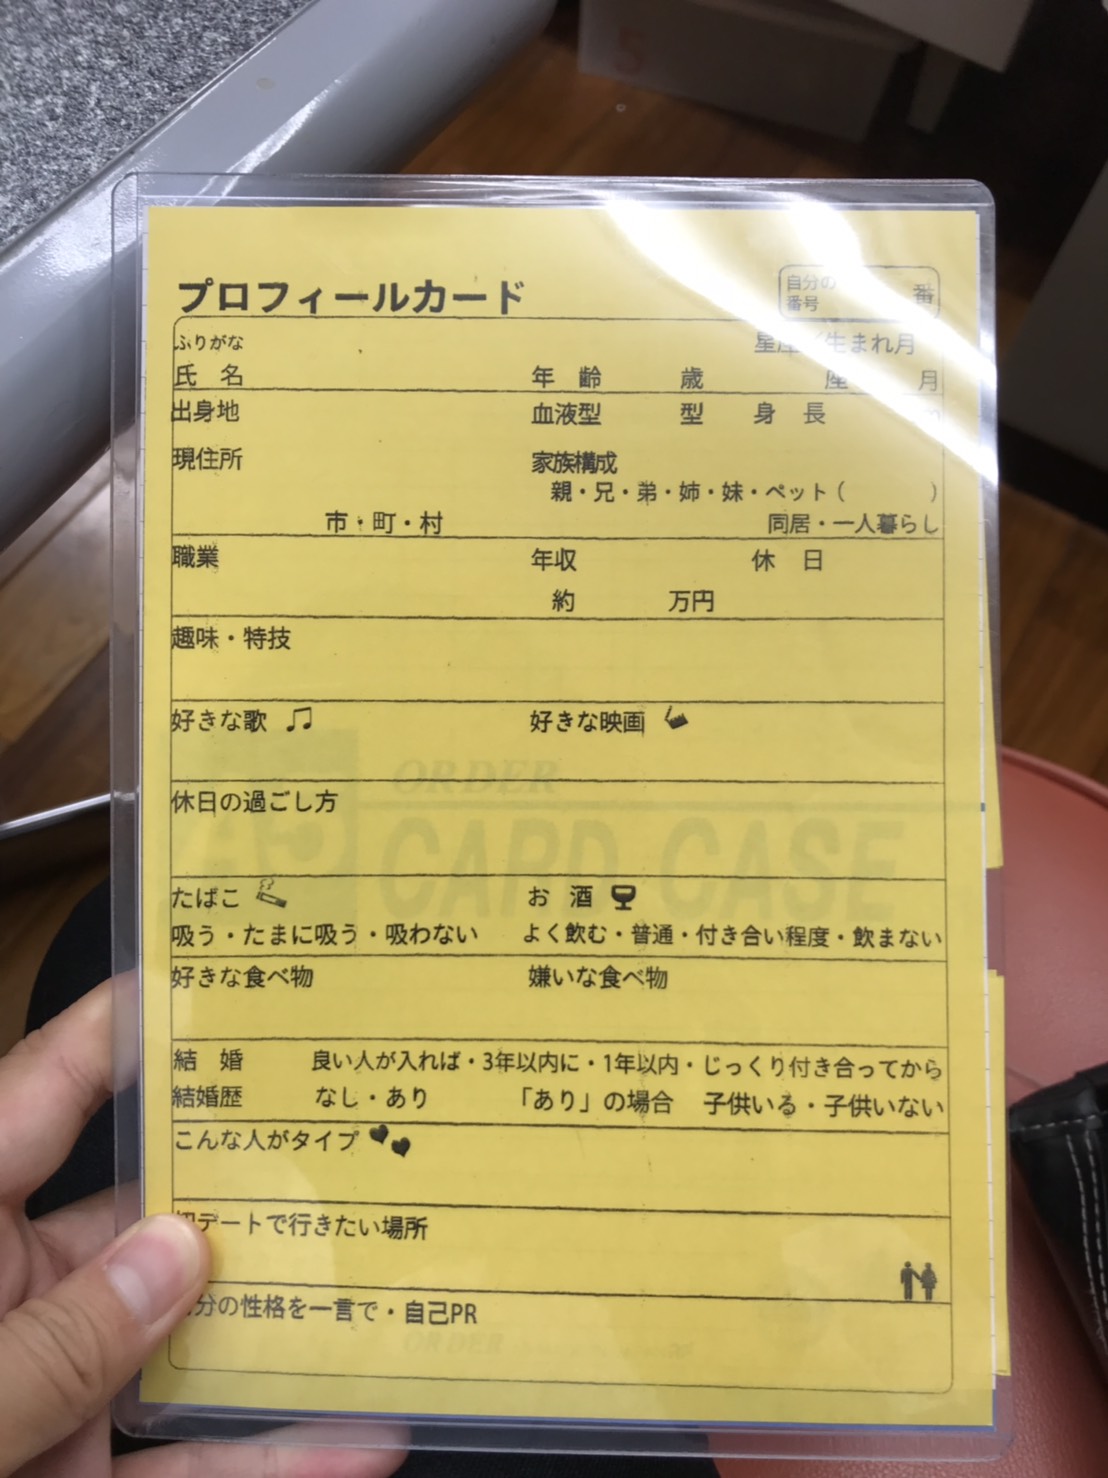 プロフィールカード
自分の
番号 番
ふりがな 星座／生まれ月
氏 名 年 齢 歳 座 月
出身地 血液型 型 身 長
現住所 家族構成
親・兄・弟・姉・妹・ペット( )
市・町・村 同居・一人暮らし
職業 年収 休 日
約 万円
趣味・特技
好きな歌 好きな映画
ORDER
休日の過ごし方
CARD CASE
たばこ お 酒
吸う・たまに吸う・吸わない よく飲む・普通・付き合い程度・飲まない
好きな食べ物 嫌いな食べ物
結 婚 良い人が入れば・3年以内に・1年以内・じっくり付き合ってから
結婚歴 なし・あり 「あり」の場合 子供いる・子供いない
こんな人がタイプ
初デートで行きたい場所
分の性格を一言で・自己PR
ORDER